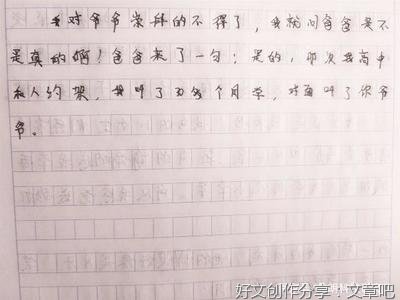 我对爷爷崇拜的不得了，我就问爸爸是不
是真的啊！爸爸来了一句：是的，那次我高中
和人约架，我叫了30多个同学，对面叫了你爷
爷。
好文创作分享，文章吧